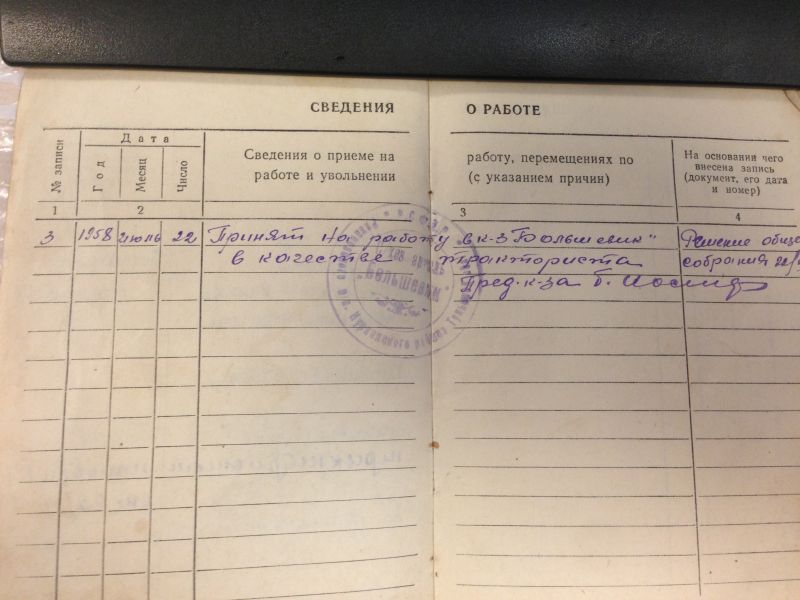 СВЕДЕНИЯ О РАБОТЕ
№ записи
Дата
Год
Месяц
Число
Сведения о приеме на работу, перемещениях по
работе и увольнении (с указанием причин)
На основании чего
внесена запись
(документ, его дата
и номер)
1 2 3 4
3 1958 июль 22 Принят на работу в к-з "Большевик" Решение общег
в качестве тракториста собрания 22/
Пред. к-за
"Большевик"